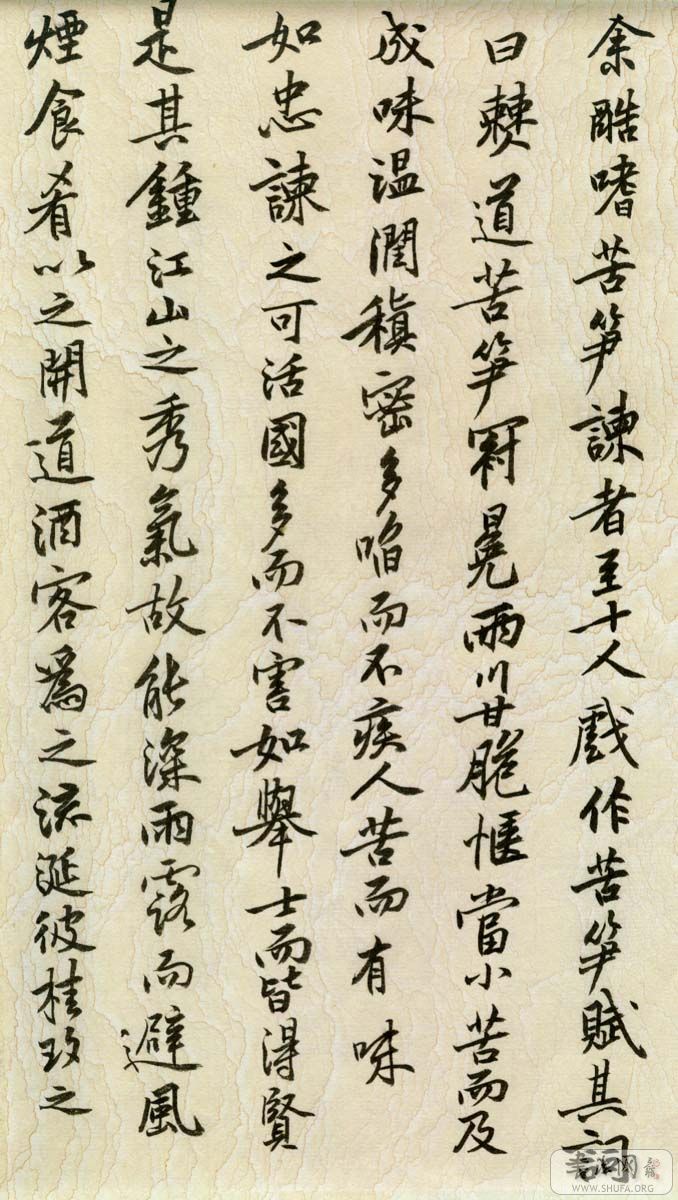 余酷嗜苦笋諫者至十人戲作苦笋賦其詞
曰僰道苦笋冠冕兩川甘脆愜當小苦而及
成味温潤稹密多啗而不疾人苦而有味
如忠諫之可活國多而不害如舉士而皆得賢
是其鍾江山之秀氣故能深雨露而避風
煙食肴以之開道酒客爲之流涎彼桂玫之
WWW.SHUFA.ORG